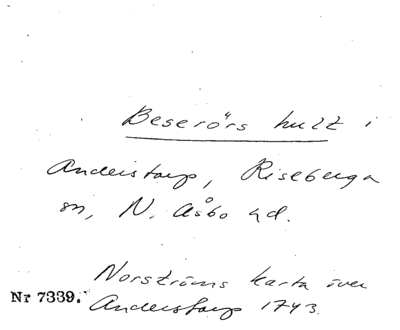 Beserörs hult i
Anderstorp, Riseberga
sn, N. Åsbo hd.
Norströms karta över
Nr 7339. Anderstorp 1743.